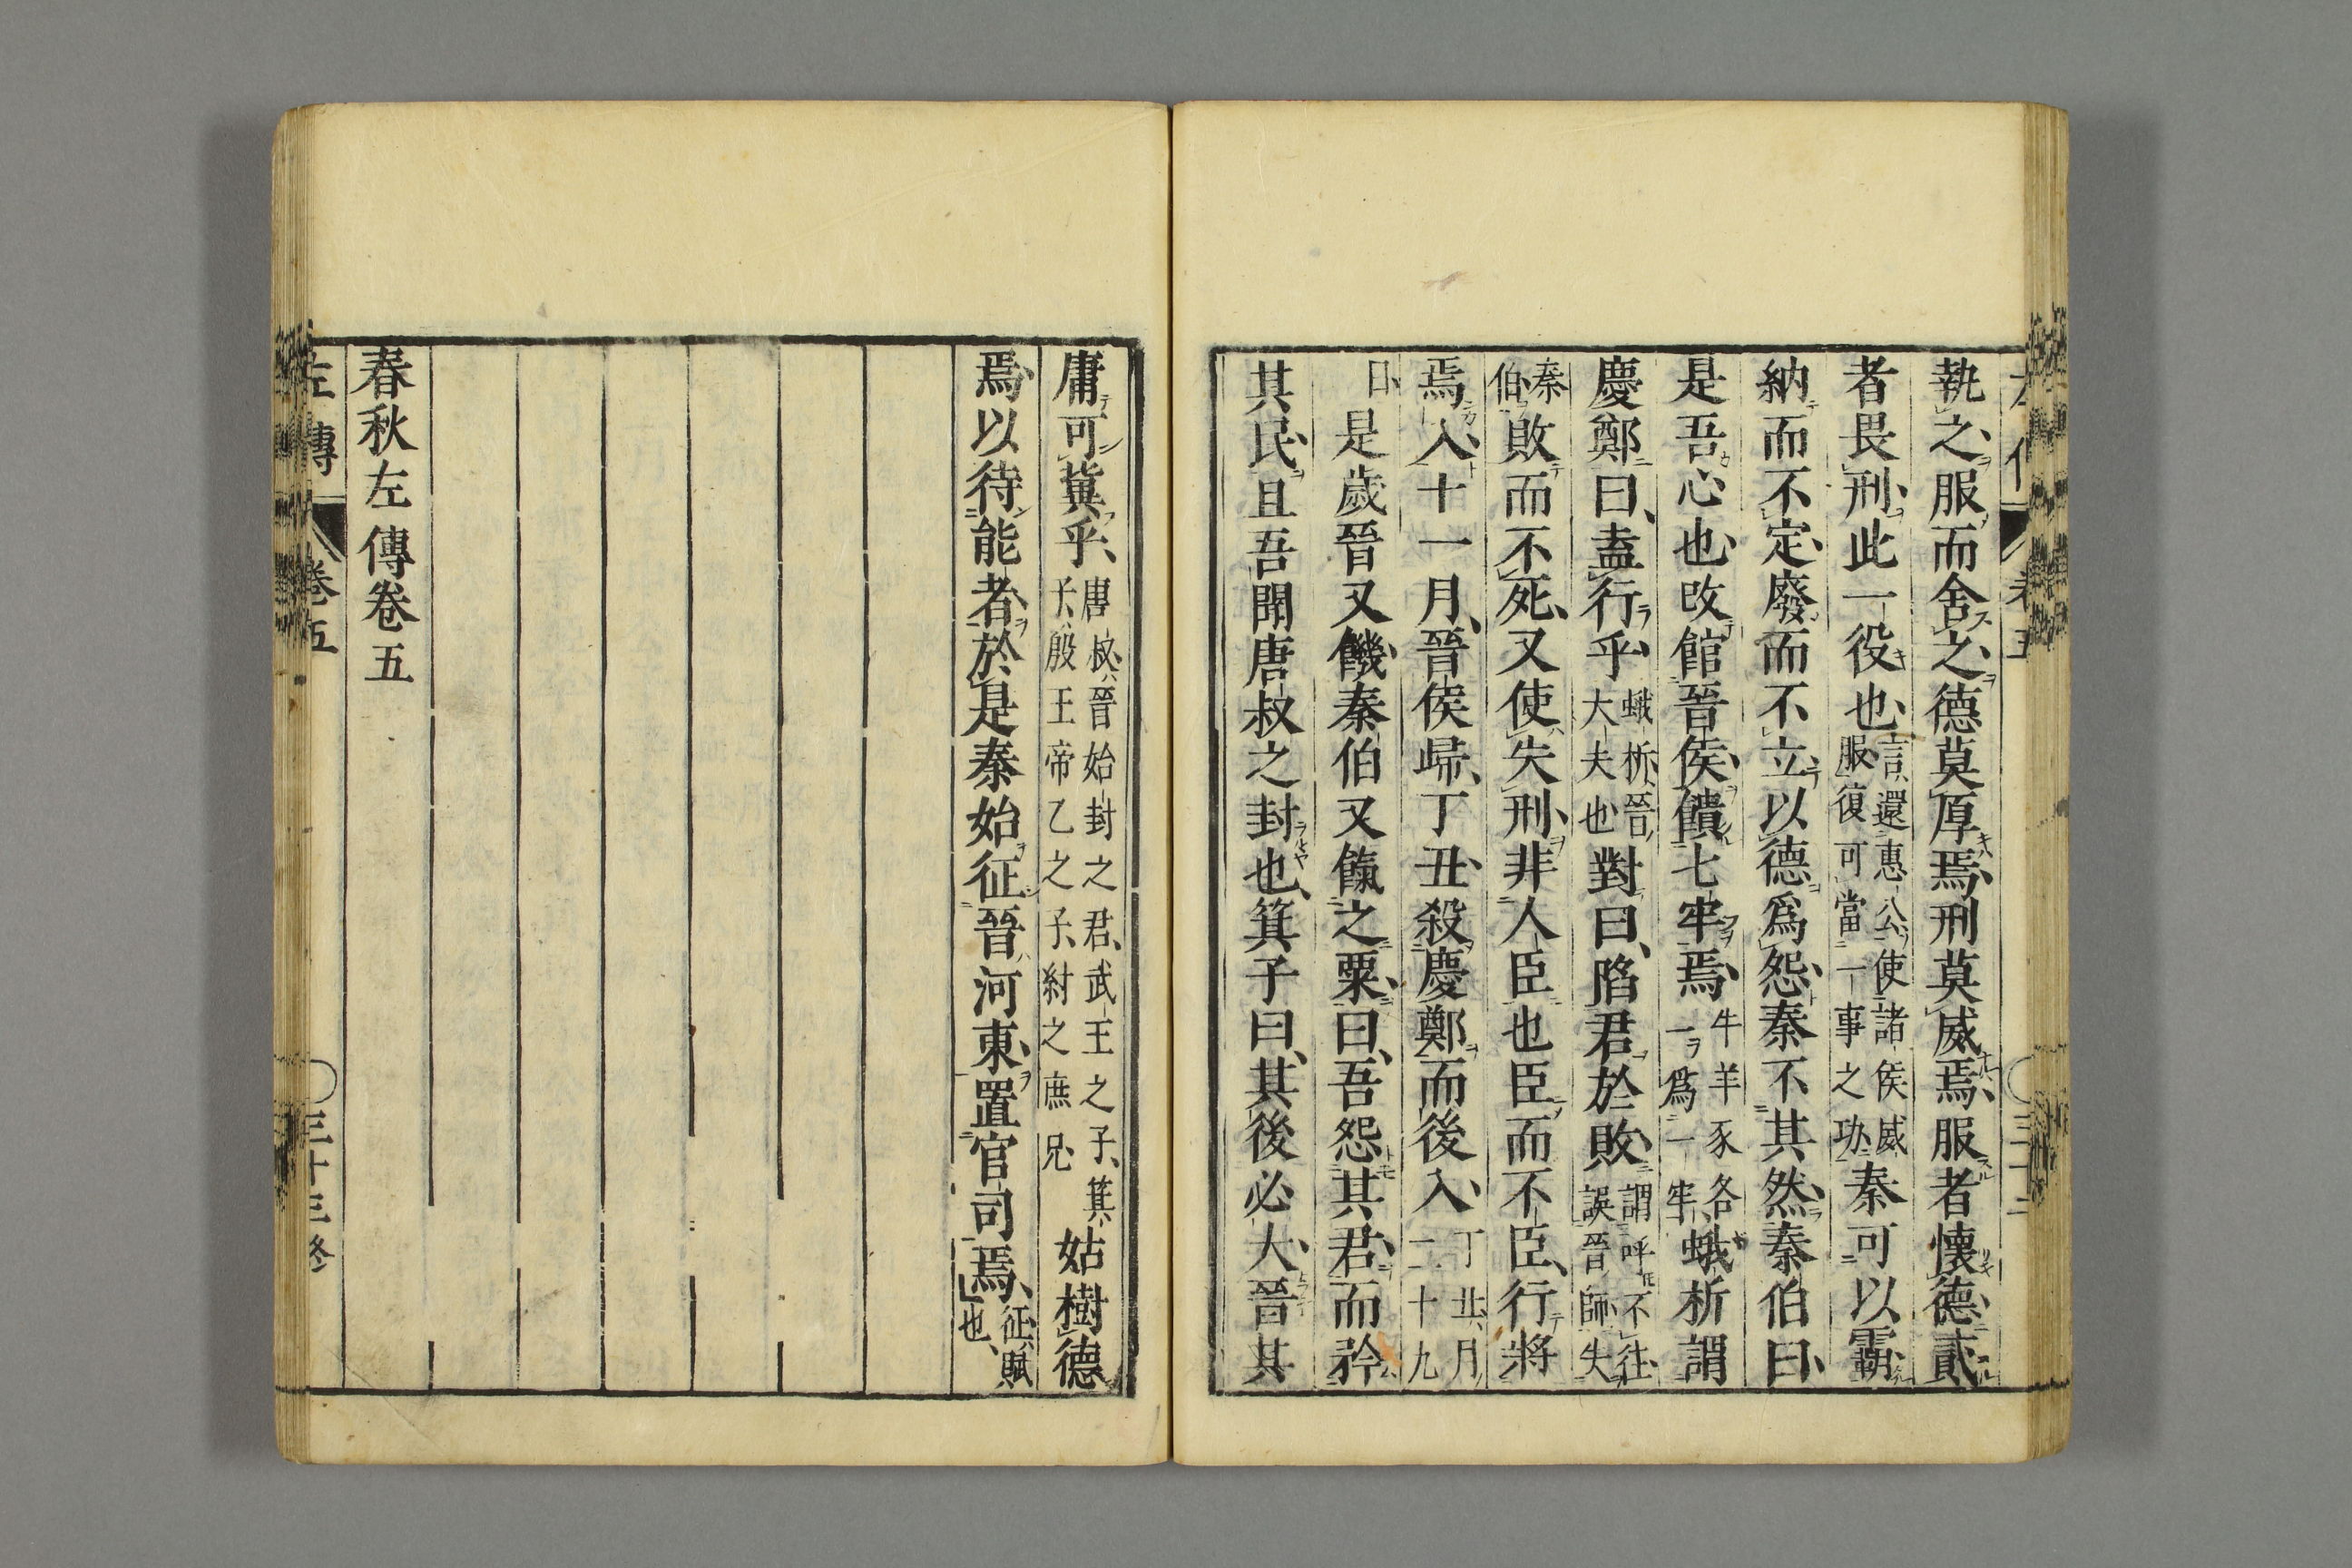 執之服而舍之德莫厚焉刑莫威焉服者懷德貳
者畏刑此一役也言還惠公使諸侯威服復可當一事之功秦可以霸
納而不定廢而不立以德爲怨秦不其然秦伯曰
是吾心也改館晉侯饋七牢焉牛羊豕各一爲一牢蛾析謂
慶鄭曰盍行乎蛾析晉大夫也對曰陷君於敗謂呼不往誤晉師失
秦伯敗而不死又使失刑非人臣也臣而不臣行將
焉入十一月晉侯歸丁丑殺慶鄭而後入丁丑月二十九
日是歲晉又饑秦伯又餼之粟曰吾怨其君而矜
其民且吾聞唐叔之封也箕子曰其後必大晉其
庸可冀乎唐叔晉始封之君武王之子箕子殷王帝乙之子紂之庶兄姑樹德
焉以待能者於是秦始征晉河東置官司焉征賦也
春秋左傳卷五
左傳 卷五 三十三終